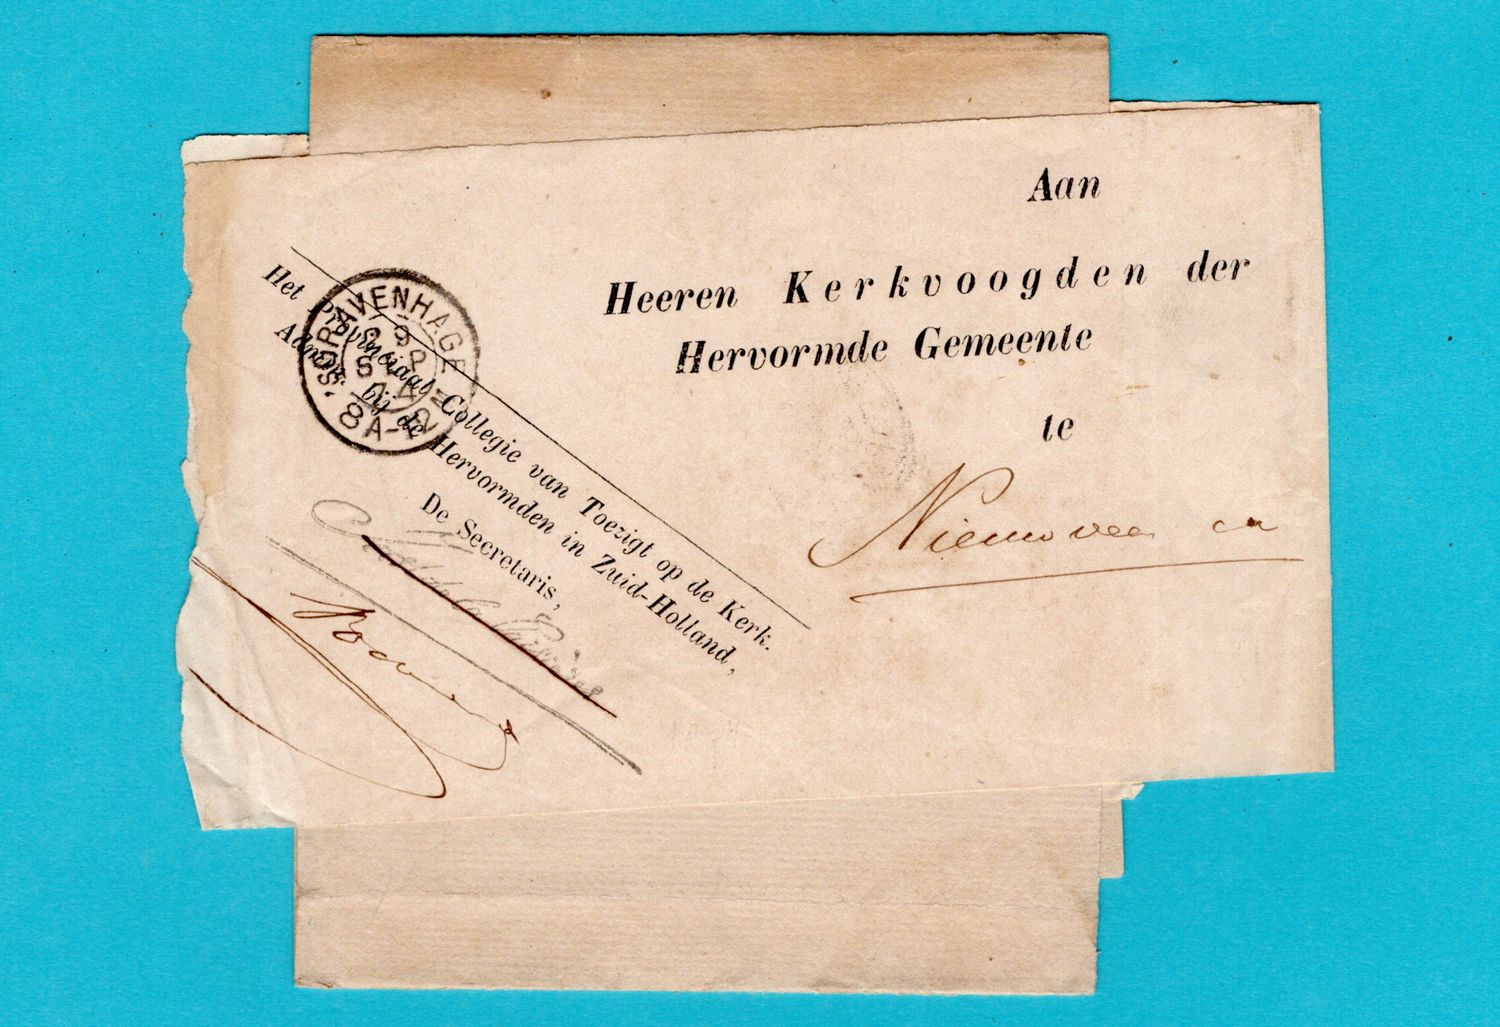 Aan
Heeren Kerkvoogden der
Hervormde Gemeente
te
Nieuwveen
'S GRAVENHAGE
9
SEP
8A-12
Het Provinciaal Collegie van Toezigt op de Kerk.
Admin. bij de Hervormden in Zuid-Holland,
De Secretaris,